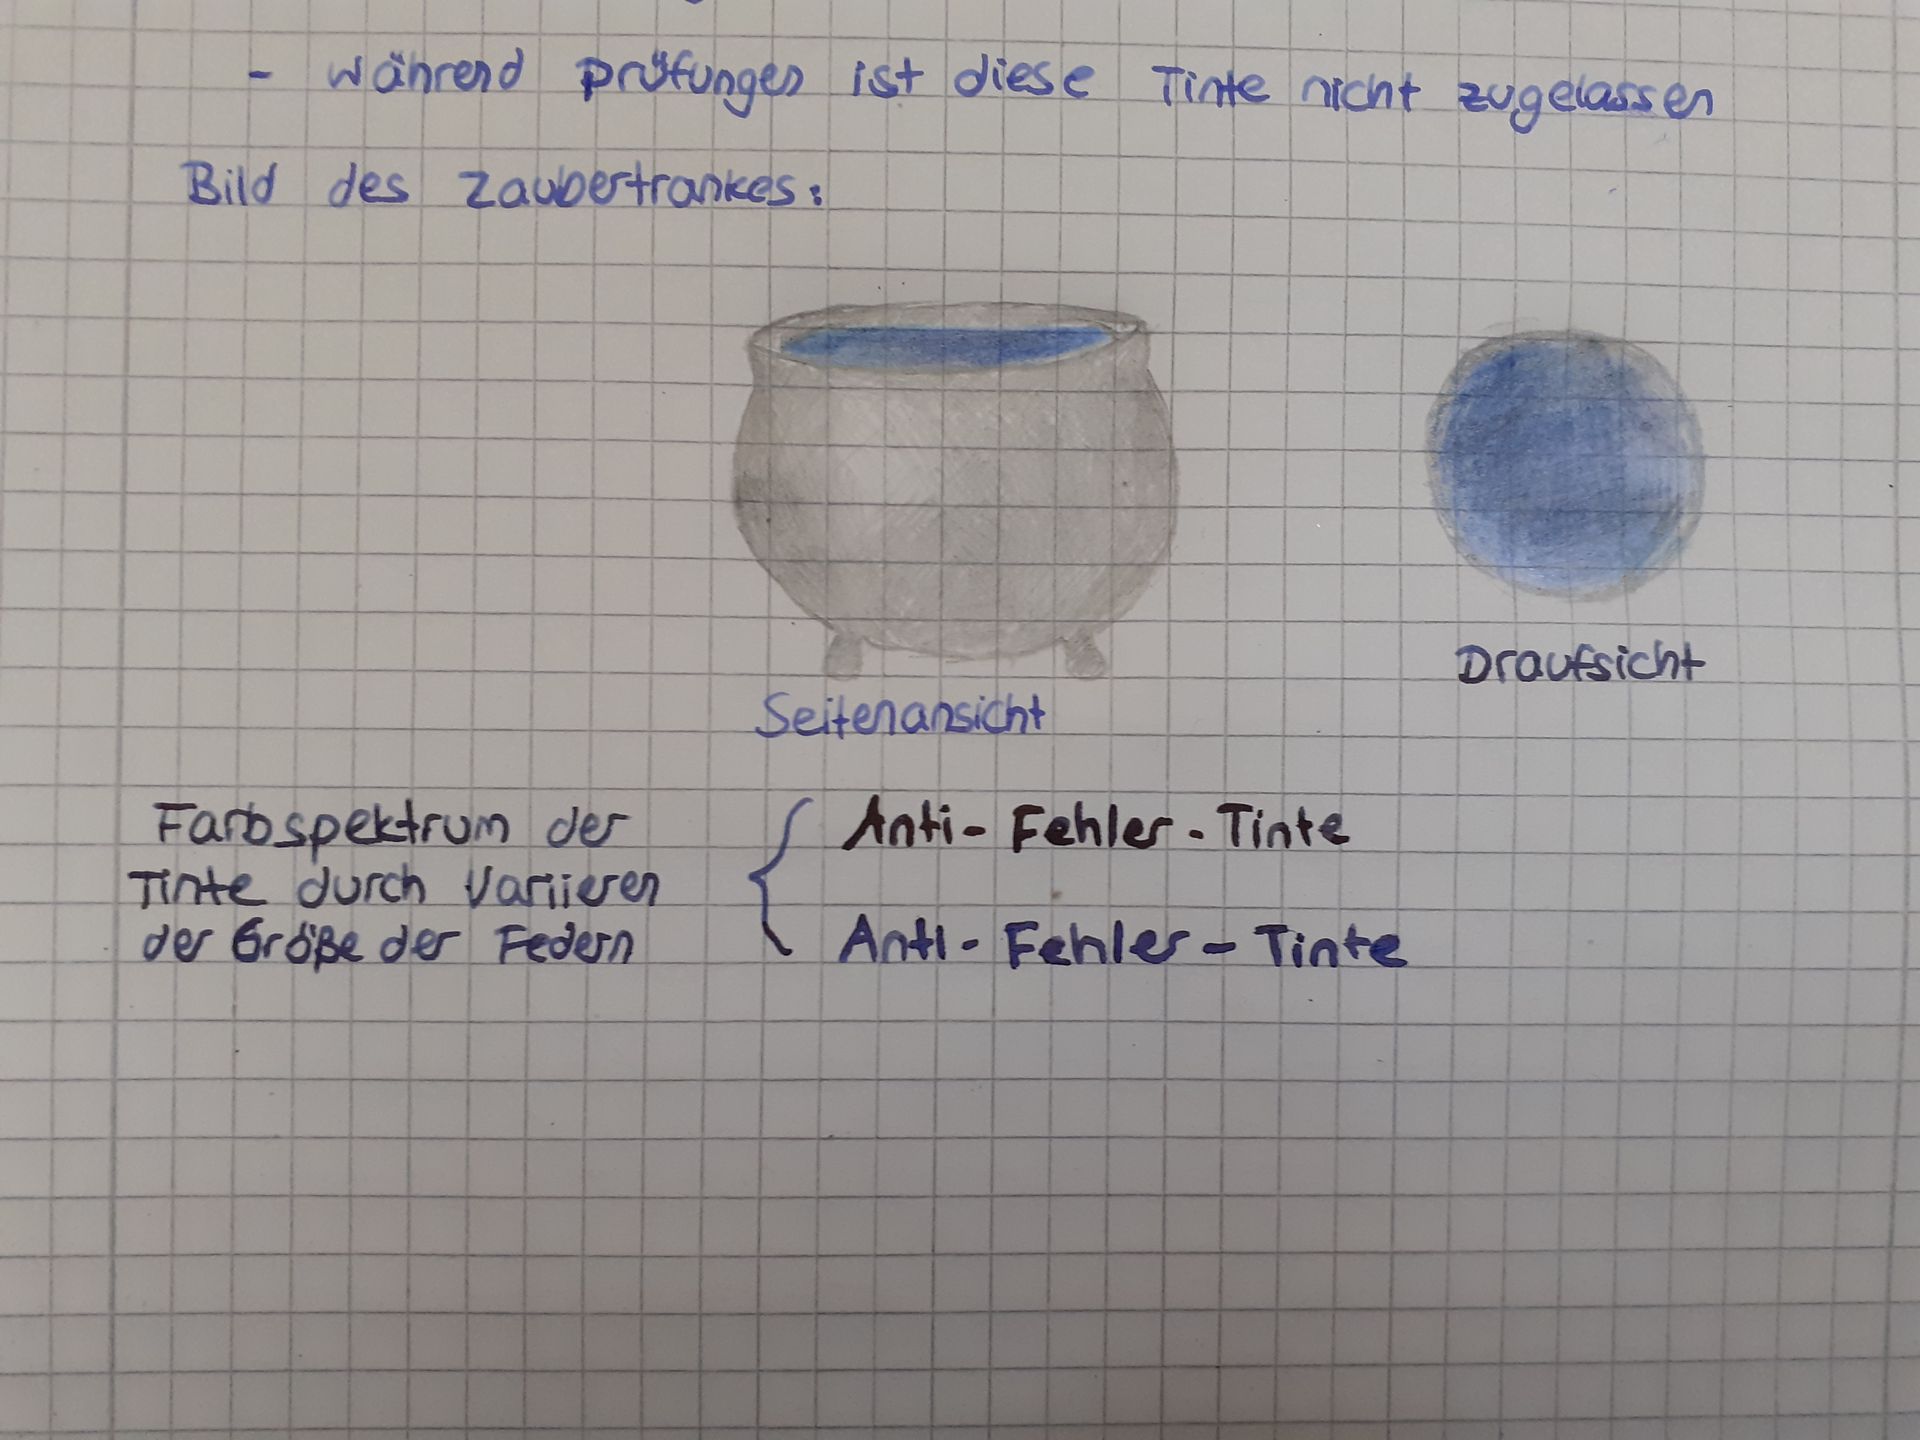 - während prüfungen ist diese Tinte nicht zugelassen
Bild des Zaubertrankes:
Draufsicht
Seitenansicht
Farbspektrum der
Tinte durch Variieren
der Größe der Federn
Anti-Fehler-Tinte
Anti-Fehler-Tinte